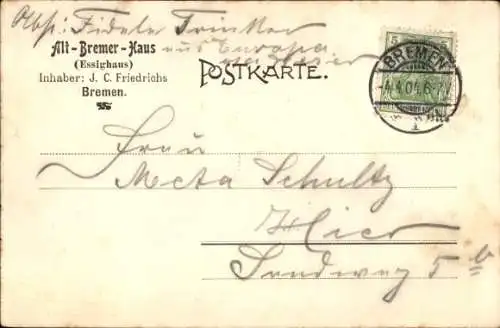 Abs: Fidele Trinker
aus Europa
Alt-Bremer-Haus
(Essighaus)
Inhaber: J. C. Friedrichs
Bremen.
POSTKARTE.
5
BREMEN
4.4.04.6-7
1
Frau
Meta Schultz
Hier
Sandweg 5 b